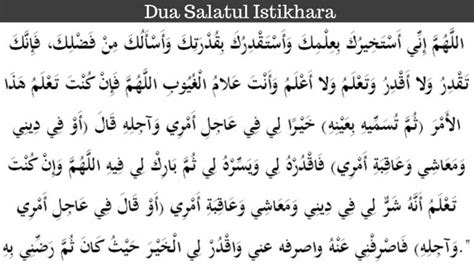 Dua Salatul Istikhara
اللَّهُمَّ إِنِّي أَسْتَخِيرُكَ بِعِلْمِكَ وَأَسْتَقْدِرُكَ بِقُدْرَتِكَ وَأَسْأَلُكَ مِنْ فَضْلِكَ، فَإِنَّكَ
تَقْدِرُ وَلا أَقْدِرُ وَتَعْلَمُ وَلا أَعْلَمُ وَأَنْتَ عَلامُ الْغُيُوبِ اللَّهُمَّ فَإِنْ كُنْتَ تَعْلَمُ هَذَا
الأَمْرَ (ثُمَّ تُسَمِّيهِ بِعَيْنِهِ) خَيْرًا لِي فِي عَاجِلِ أَمْرِي وَآجِلِهِ قَالَ (أَوْ فِي دِينِي
وَمَعَاشِي وَعَاقِبَةِ أَمْرِي) فَاقْدُرْهُ لِي وَيَسِّرْهُ لِي ثُمَّ بَارِكْ لِي فِيهِ اللَّهُمَّ وَإِنْ كُنْتَ
تَعْلَمُ أَنَّهُ شَرٌّ لِي فِي دِينِي وَمَعَاشِي وَعَاقِبَةِ أَمْرِي (أَوْ قَالَ فِي عَاجِلِ أَمْرِي
وَآجِلِهِ) فَاصْرِفْنِي عَنْهُ واصرفه عني وَاقْدُرْ لِي الْخَيْرَ حَيْثُ كَانَ ثُمَّ رَضِّنِي بِهِ."